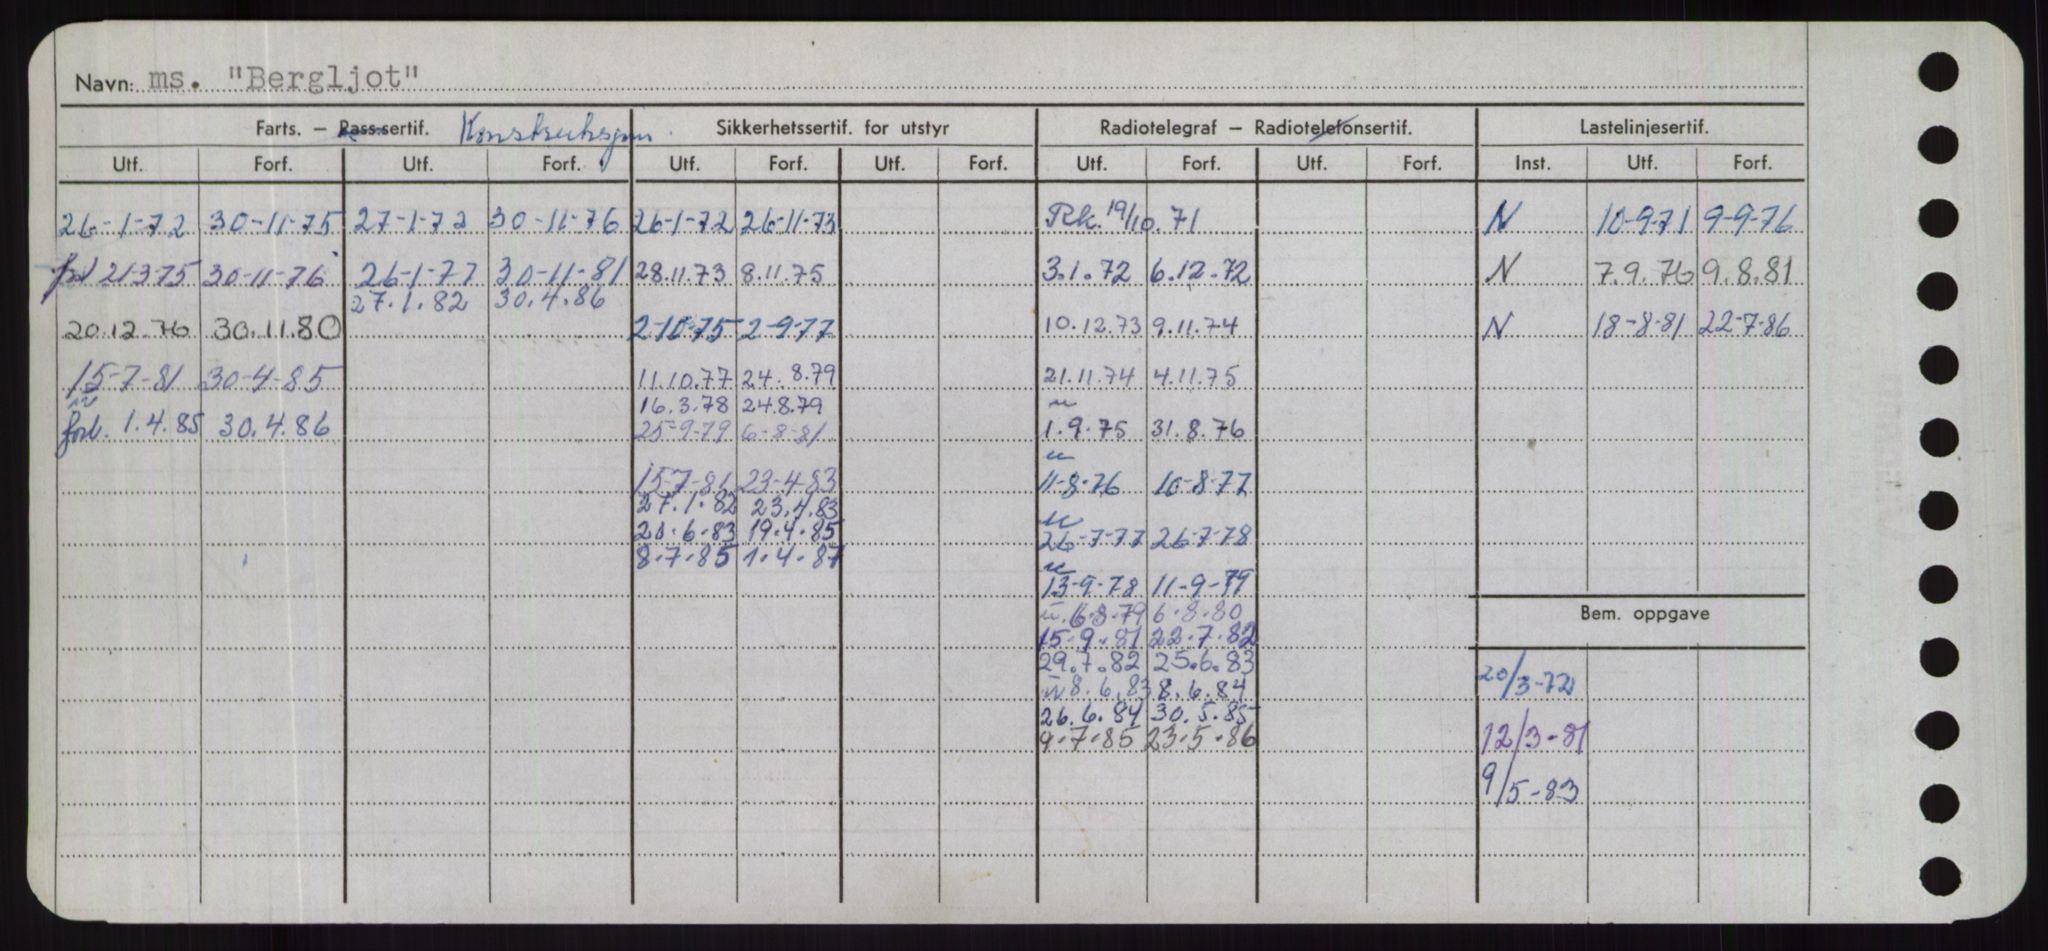 Navn: ms. "Bergljot"
Farts. – Pass.sertif. Konstruksjon Sikkerhetssertif. for utstyr Radiotelegraf – Radiotelefonsertif. Lastelinjesertif.
Utf. Forf. Utf. Forf. Utf. Forf. Utf. Forf. Utf. Forf. Utf. Forf. Inst. Utf. Forf.
26-1-72 30-11-75 27-1-72 30-11-76 26-1-72 26-11-73 Rk. 19/10.71 N 10-9-71 9-9-76
21-3-75 30-11-76 26-1-77 30-11-81 28.11.73 8.11.75 3.1.72 6.12.72 N 7.9.76 9.8.81
27.1.82 30.4.86
20.12.76 30.11.80 2-10-75 2-9-77 10.12.73 9.11.74 N 18-8-81 22-7-86
15-7-81 30-4-85 11.10.77 24.8.79 21.11.74 4.11.75
16.3.78 24.8.79
forl. 1.4.85 30.4.86 25-9-79 6-8-81 1.9.75 31.8.76
15-7-81 23-4-83 11-8-76 10-8-77
27.1.82 23.4.83
20.6.83 19.4.85 26-7-77 26-7-78
8.7.85 1.4.87
13-9-78 11-9-79
6-8-79 6-8-80
Bem. oppgave
15.9.81 22.7.82
29.7.82 25.6.83
20/3-72
8.6.83 8.6.84
26.6.84 30.5.85
9.7.85 23.5.86 12/3-81
9/5-83